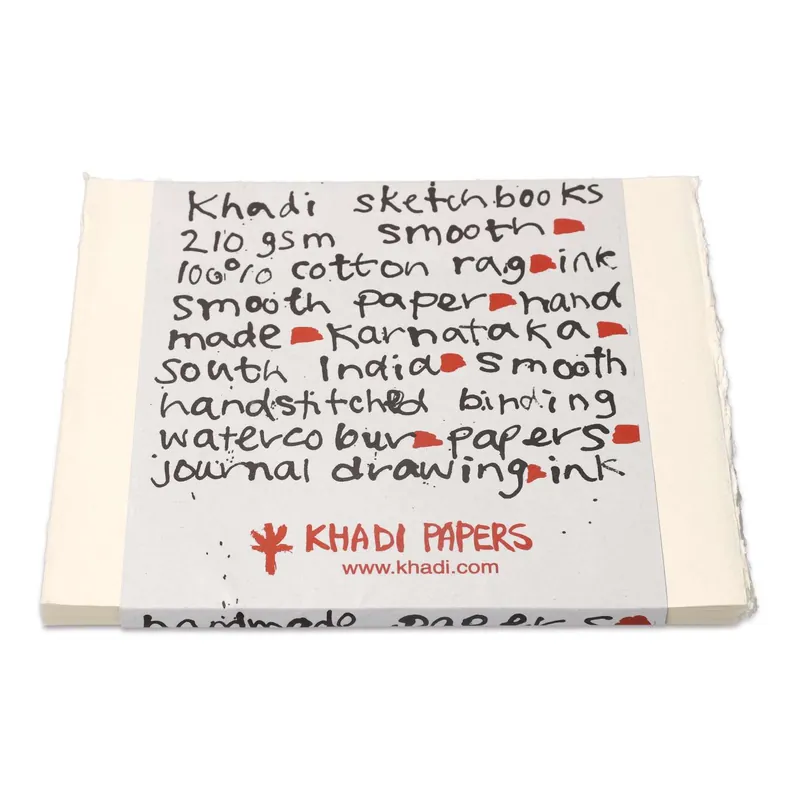 Khadi sketchbooks
210 gsm smooth
100% cotton rag ink
smooth paper hand
made Karnataka
South India smooth
handstitched binding
watercobur papers
journal drawing ink
KHADI PAPERS
www.khadi.com
handmade papers